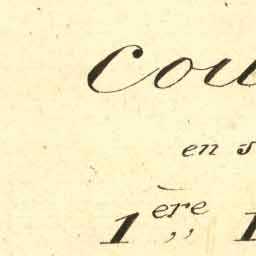 cou
en s
1ère 1